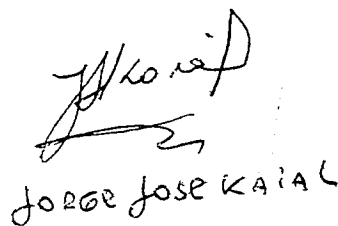 JORGE JOSE KAIAL